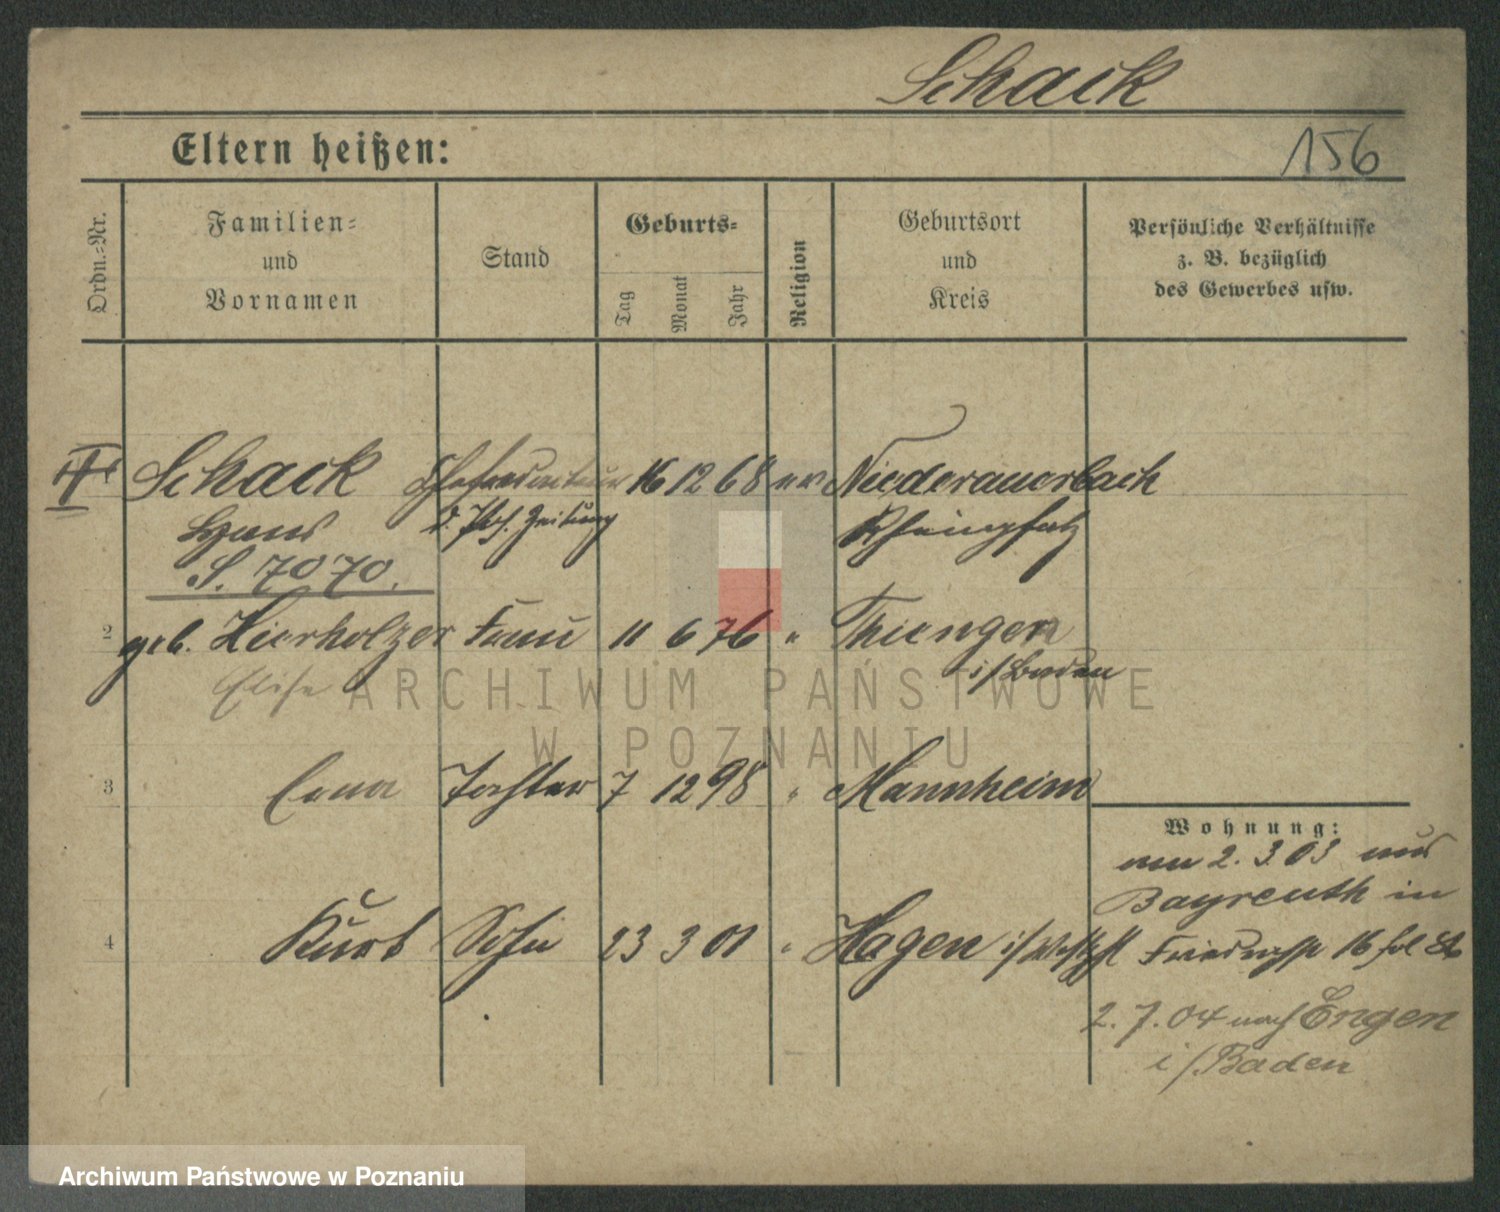 Schack
Eltern heißen:
156
Ordn.-Nr.
Familien-
und
Vornamen
Stand
Geburts-
Tag
Monat
Jahr
Religion
Geburtsort
und
Kreis
Persönliche Verhältnisse
z. B. bezüglich
des Gewerbes usw.
Schack Chefredakteur 16 12 68 ev Niederauerbach
Hans d. Pos. Zeitung Rheinpfalz
S. 7070.
2 geb. Hierholzer Frau 11 6 76 " Thiengen
Elise i/Baden
3 Erna Tochter 7 12 98 " Mannheim
Wohnung:
2. 3 03 aus
Bayreuth in
4 Kurt Sohn 23 3 01 " Hagen i/Westf
Friedrichstr 16
2. 7. 04 nach Engen
i/Baden
ARCHIWUM PAŃSTWOWE
W POZNANIU
Archiwum Państwowe w Poznaniu